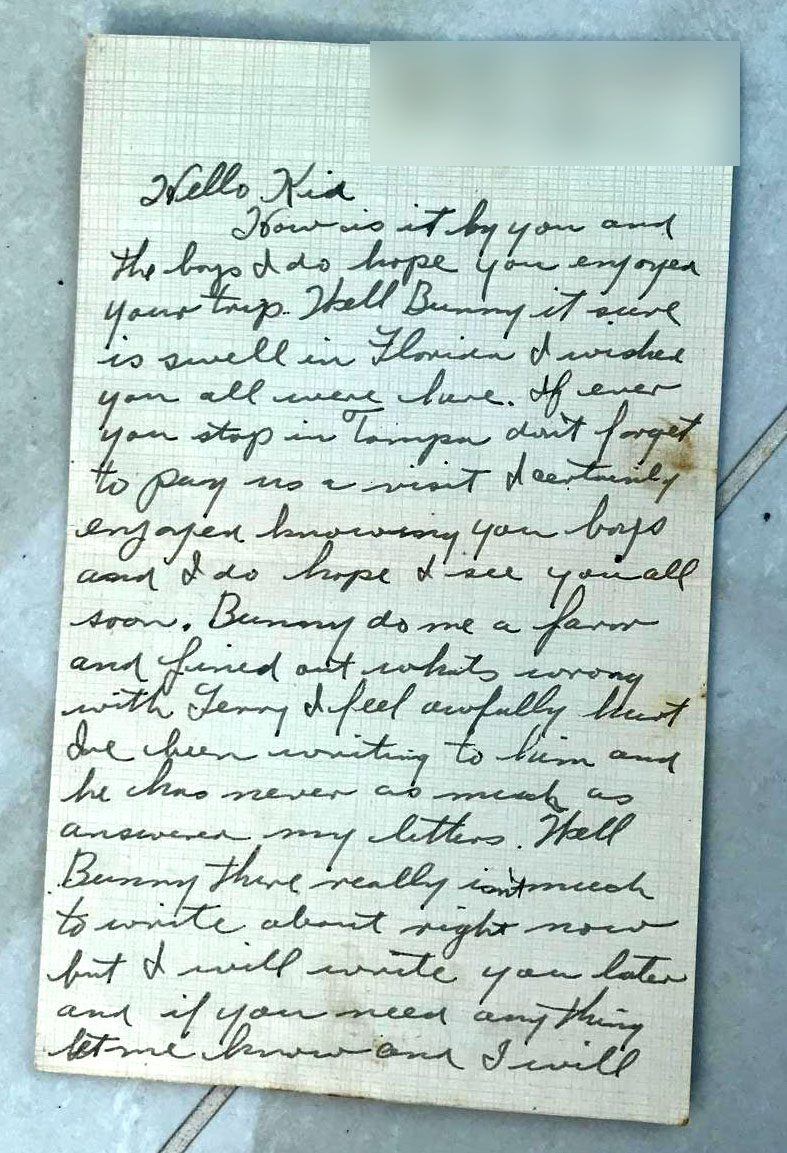 Hello Kid
How is it by you and
the boys I do hope you enjoyed
your trip. Well Bunny it sure
is swell in Florida I wished
you all were here. If ever
you stop in Tampa don't forget
to pay us a visit I certainly
enjoyed knowing you boys
and I do hope I see you all
soon. Bunny do me a favor
and fined out whats wrong
with Jerry I feel awfully hurt
Ive been writing to him and
he has never as much as
answered my letters. Well
Bunny there really isn't much
to write about right now
but I will write you later
and if you need anything
let me know and I will